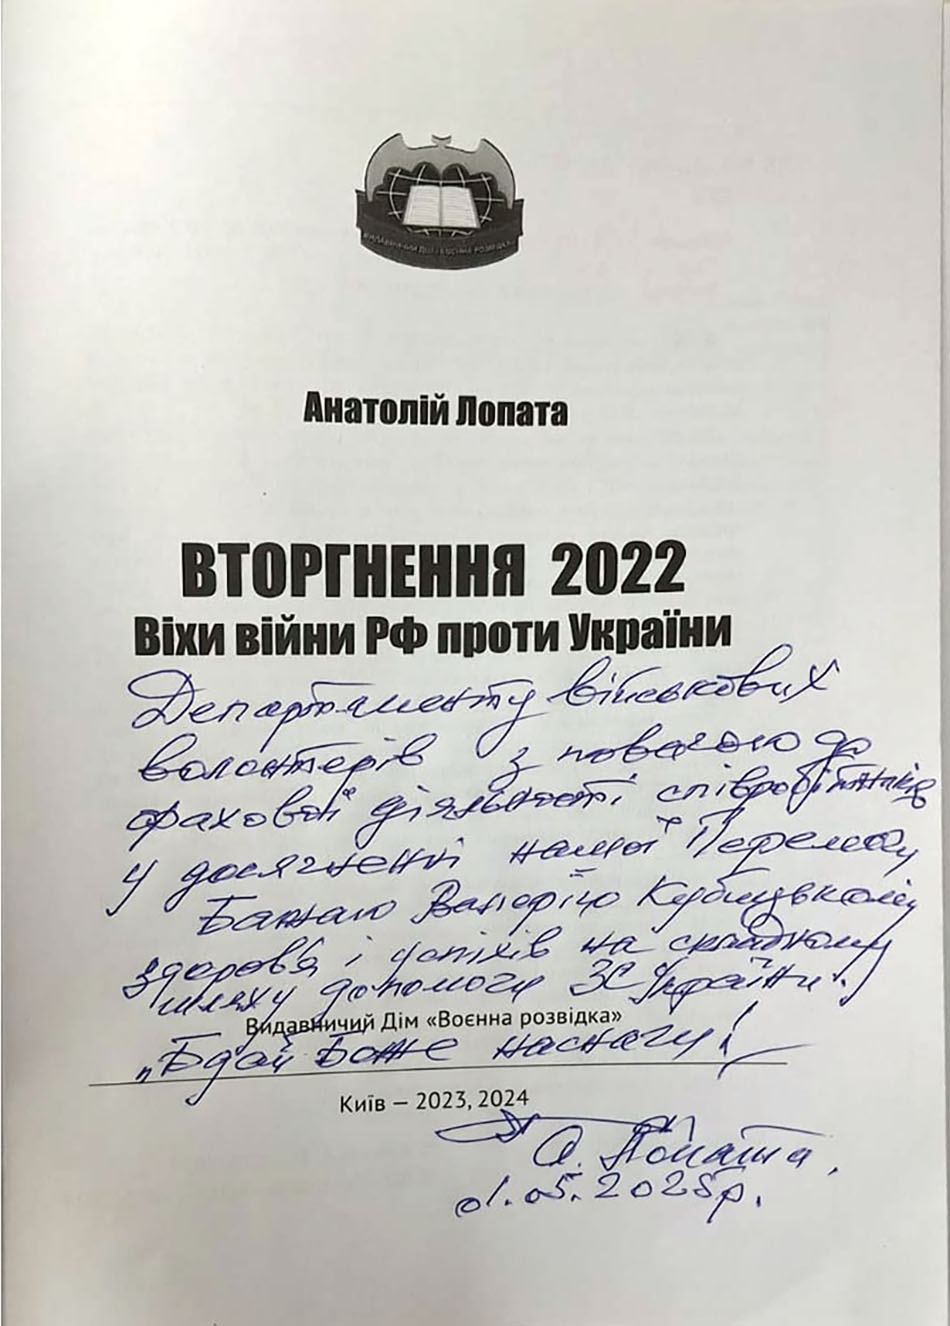 ВИДАВНИЧИЙ ДІМ «ВОЄННА РОЗВІДКА»
Анатолій Лопата
ВТОРГНЕННЯ 2022
Віхи війни РФ проти України
Департаменту військових
волонтерів з повагою до
фахової діяльності співробітників
у досягненні нашої Перемоги
Бажаю Валерію Кубицькому
здоров'я і успіхів на складному
шляху допомоги ЗС України!
Видавничий Дім «Воєнна розвідка»
Боже наснаги!
Київ — 2023, 2024
А. Лопата.
01.05.2025р.